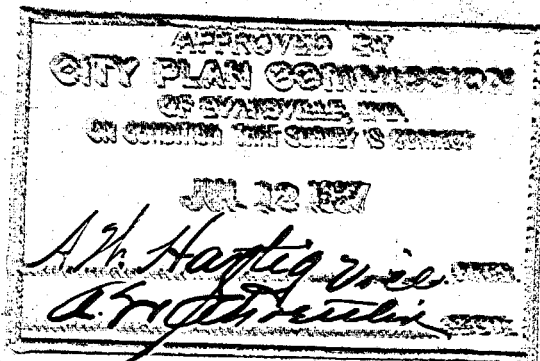 APPROVED BY
CITY PLAN COMMISSION
OF EVANSVILLE, IND.
ON CONDITION THAT SURVEY IS CORRECT
JUL 12 1937
A. W. Hartig Vice